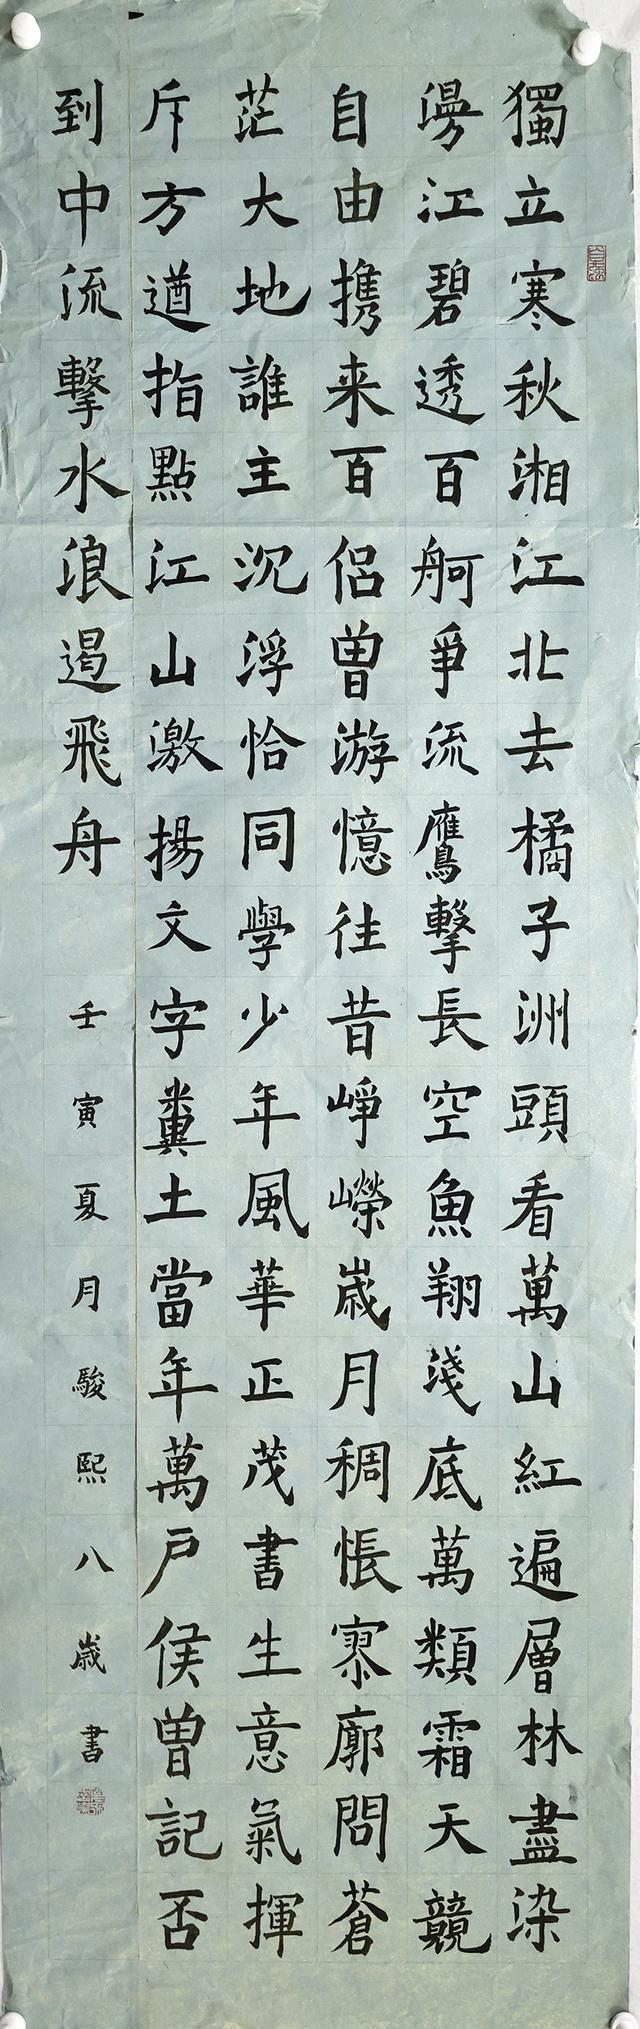 獨立寒秋湘江北去橘子洲頭看萬山紅遍層林盡染
漫江碧透百舸爭流鷹擊長空魚翔淺底萬類霜天競
自由携来百侶曾游憶往昔崢嶸歲月稠悵寥廓問蒼
茫大地誰主沉浮恰同學少年風華正茂書生意氣揮
斥方遒指點江山激揚文字糞土當年萬戶侯曾記否
到中流擊水浪遏飛舟
壬寅夏月駿熙八歲書